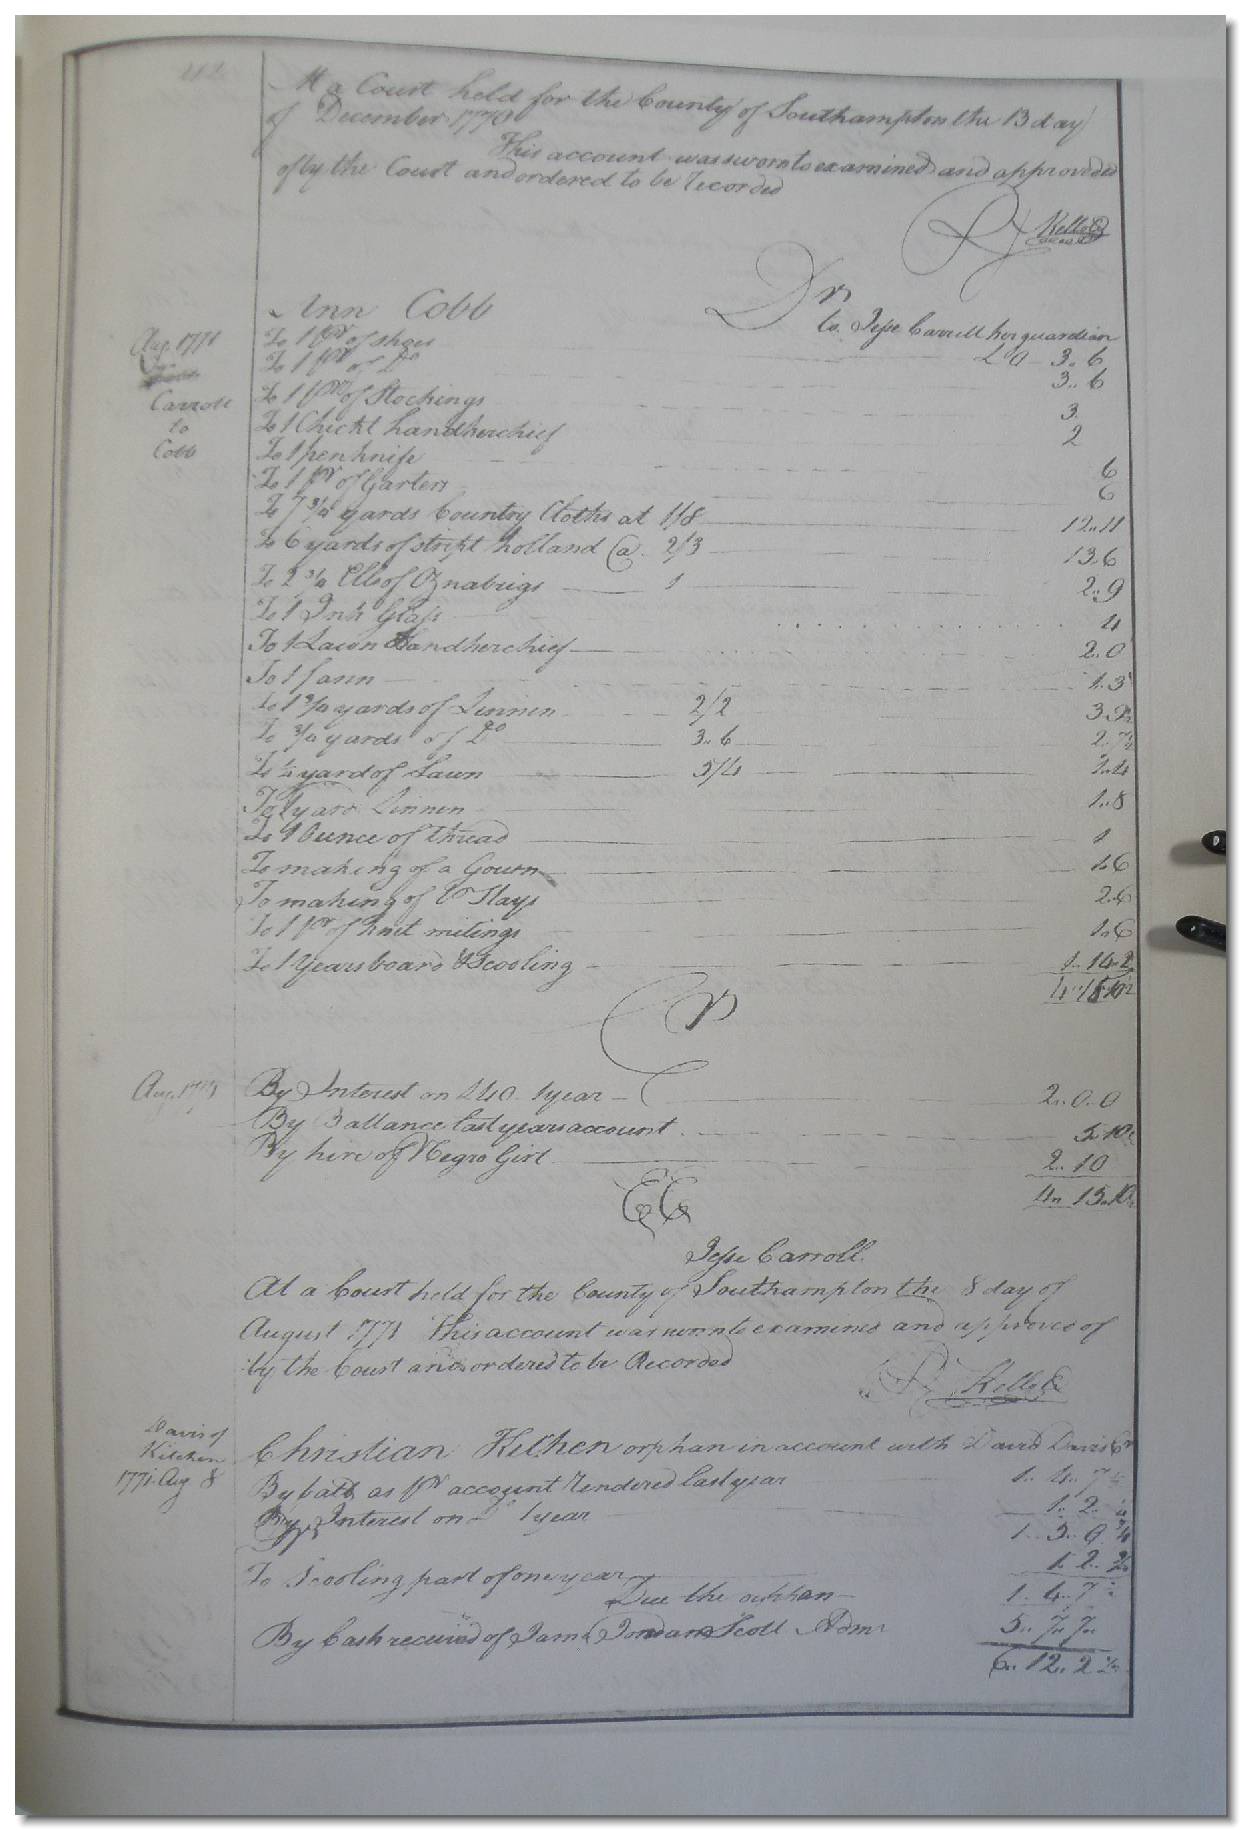 212
At a Court held for the County of Southampton the 13 day
of December 1770
This account was sworn to examined and approvded
of by the Court and ordered to be Recorded
Ann Cobb
Dr
to Jesse Carrell her guardian
Aug. 1771
To 1 pr of shoes £ 0 3.. 6
To 1 pr of Do 3.. 6
Carroll
to
Cobb
To 1 pr of Stockings 3
To 1 Chickt handherchief 2
To 1 penknife 6
To 1 pr of Garters 6
To 7 3/4 yards Country Cloths at 1/8 12..11
To 6 yards of stript holland @ 2/3 13.6
To 2 3/4 Ells of Oznabrigs 1 2..9
To 1 Ink Glass 4
To 1 Lawn Handherchief 2..0
To 1 fann 1.3
To 1 3/4 yards of Linnen 2/2 3.9½
To 3/4 yards of Do 3..6 2..7½
To ¼ yard of Lawn 5/4 1..4
To 1 yard Linnen 1..8
To 1 Ounce of thread 1
To making of a Gown 4.6
To making of Stays 2.6
To 1 pr of knit mitings 1..6
To 1 Years board & Scooling 1.. 14..2
4..15..10½
Cr
Aug. 1771
By Interest on £40 1 year 2..0..0
By Ballance last years account 5..10½
By hire of Negro Girl 2..10
4.. 15..10½
EE
Jesse Carroll
At a Court held for the County of Southampton the 8 day of
August 1771 This account was sworn to examined and approved of
by the Court and ordered to be Recorded
Davis of
Kitchen
1771 Aug 8
Christian Kethen orphan in account with David Davis Cr
By ball as pr account Rendered last year 1.. 4.. 7
By Interest on Do 1 year 1.. 2..
1.. 5.. 9 3/4
To Scooling part of one year 1.. 2..
Due the orphan 1.. 4.. 7
By Cash received of Jordan Scott Adm 5.. 7.. 7..
6.. 12.. 2 ½